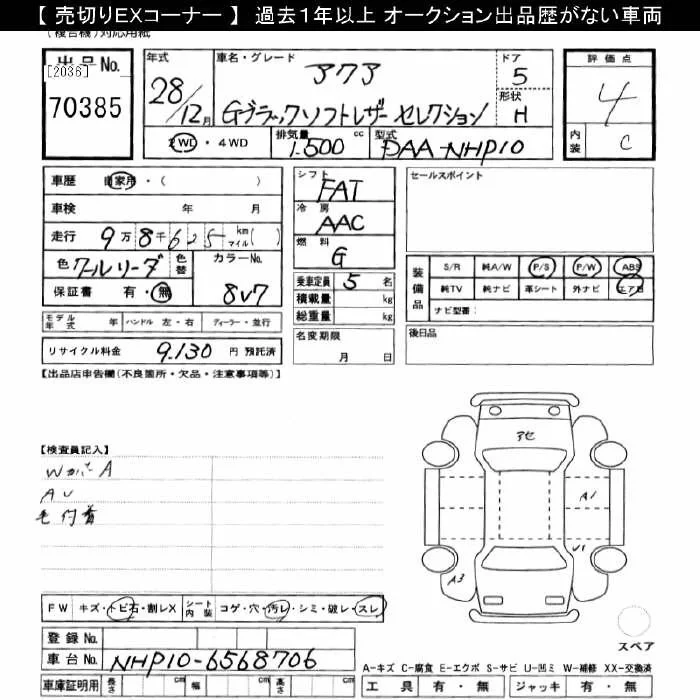 【 売切りEXコーナー 】 過去1年以上 オークション出品歴がない車両
(複合機)対応用紙
出品No.
[2036]
70385
年式
28/12月
車名・グレード
アクア
Gブラックソフトレザーセレクション
ドア
5
形状
H
評価点
4
内装
C
2WD・4WD
排気量
1.500
cc
型式
DAA-NHP10
車歴 自家用・( )
車検 年 月
走行 9万8千625 km マイル( )
色 クールソーダ
色替
カラーNo.
8V7
保証書 有・無
シフト
FAT
冷房
AAC
燃料
G
乗車定員 5 名
積載量 kg
総重量 kg
名変期限
月 日
セールスポイント
装備品
S/R 純A/W P/S P/W ABS
純TV 純ナビ 革シート 外ナビ エアB
ナビ型番:
後日品
モデル年式 年 ハンドル 左・右 ディーラー・並行
リサイクル料金 9.130 円 預託済
【出品店申告欄(不良箇所・欠品・注意事項等)】
【検査員記入】
WカバーA
AU
毛付着
アセ
A1
U1
A3
スペア
FW キズ・トビ石・割レX
シート内装 コゲ・穴・汚レ・シミ・破レ・スレ
登録No.
車台No. NHP10-6568706
A-キズ C-腐食 E-エクボ S-サビ U-凹ミ W-補修 XX-交換済
車庫証明用 長さ cm 幅 cm 高さ cm
工具 有・無 ジャッキ 有・無